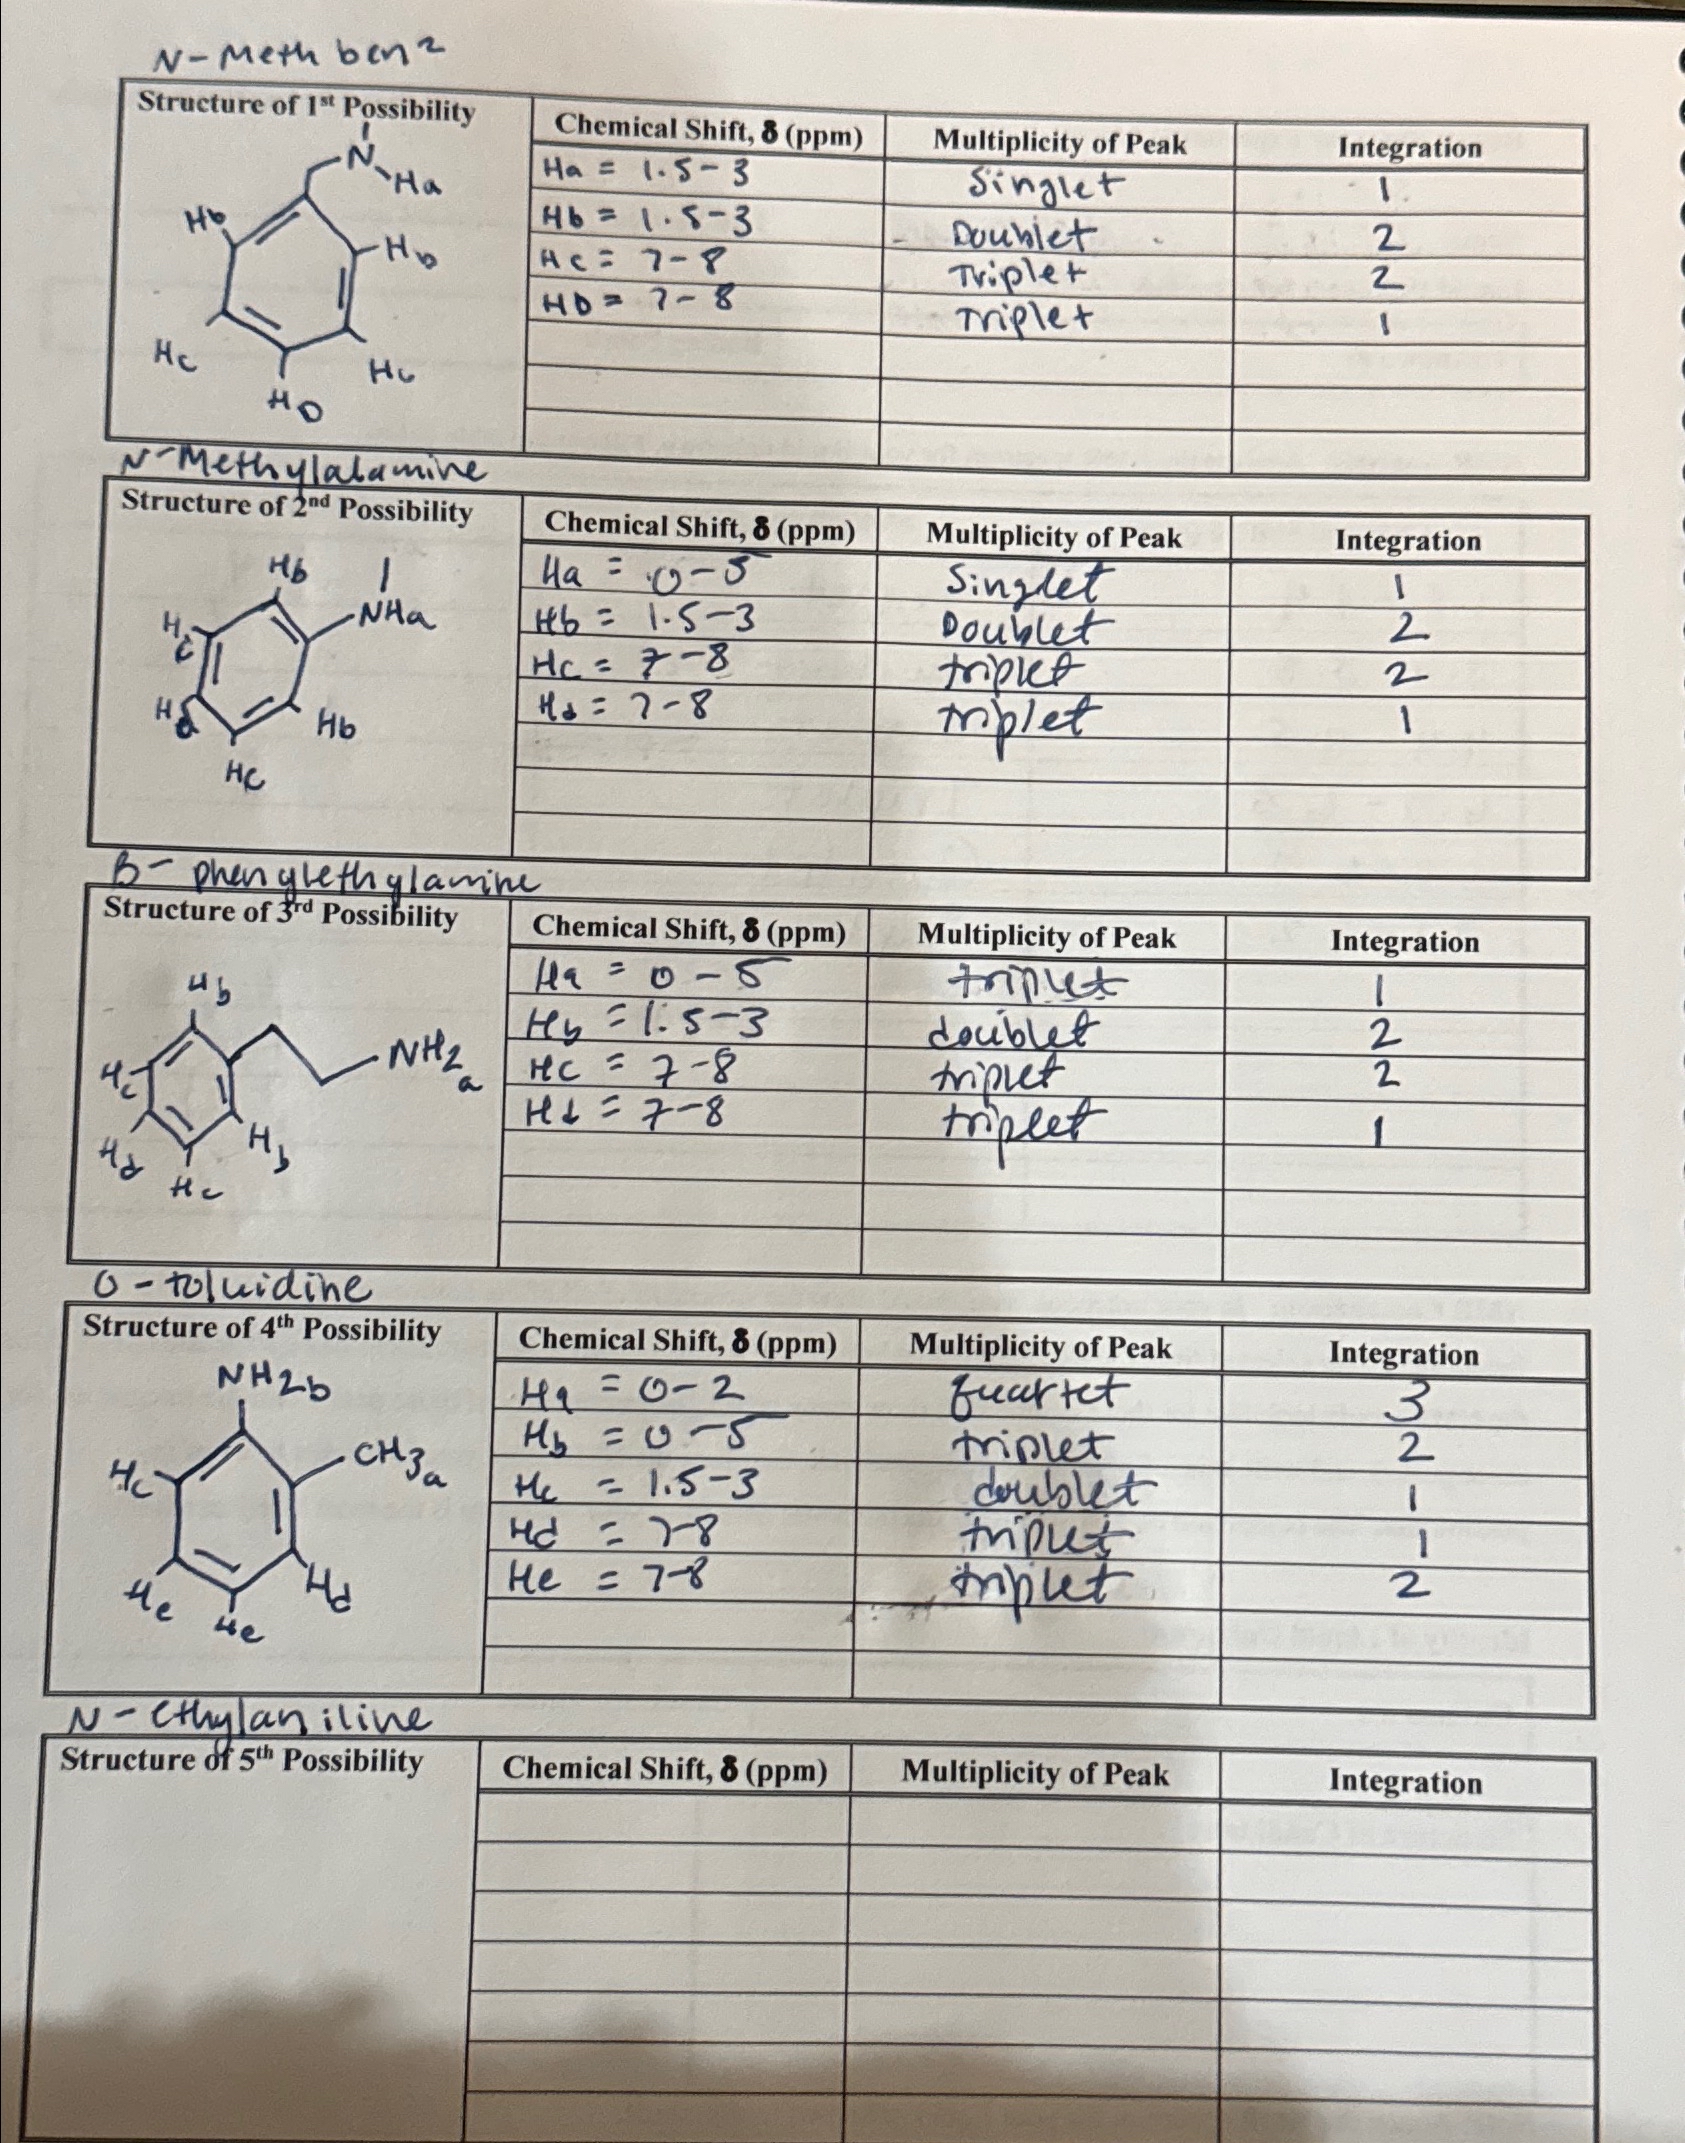 N-Meth ben²
Structure of 1st Possibility
Chemical Shift, δ (ppm) Multiplicity of Peak Integration
N
Ha
Hb
Hb
Hc
Hc
HD
Ha = 1.5-3 Singlet 1
Hb = 1.5-3 Doublet 2
Hc = 7-8 Triplet 2
HD = 7-8 Triplet 1
N-Methylalamine
Structure of 2nd Possibility
Chemical Shift, δ (ppm) Multiplicity of Peak Integration
Hb
NHa
Hc
Hd
Hb
Hc
Ha = 0-5 Singlet 1
Hb = 1.5-3 Doublet 2
Hc = 7-8 triplet 2
Hd = 7-8 triplet 1
B- phenylethylamine
Structure of 3rd Possibility
Chemical Shift, δ (ppm) Multiplicity of Peak Integration
Hb
NH2a
Hc
Hd
Hb
Hc
Ha = 0-5 triplet 1
Hb = 1.5-3 doublet 2
Hc = 7-8 triplet 2
Hd = 7-8 triplet 1
O-toluidine
Structure of 4th Possibility
Chemical Shift, δ (ppm) Multiplicity of Peak Integration
NH2b
CH3a
Hc
He
Hd
He
Ha = 0-2 quartet 3
Hb = 0-5 triplet 2
Hc = 1.5-3 doublet 1
Hd = 7-8 triplet 1
He = 7-8 triplet 2
N-ethylaniline
Structure of 5th Possibility
Chemical Shift, δ (ppm) Multiplicity of Peak Integration